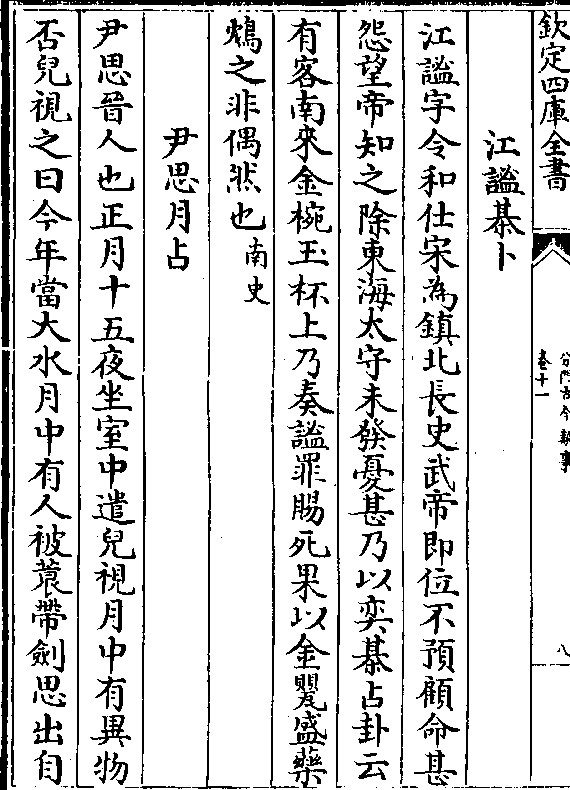 欽定四庫全書
分門古今類事
卷十一
八
江謐棊卜
江謐字令和仕宋為鎮北長史武帝即位不預顧命甚
怨望帝知之除東海太守未發憂甚乃以奕棊占卦云
有客南來金椀玉杯上乃奏謐罪賜死果以金甖盛藥
鴆之非偶然也南史
尹思月占
尹思晉人也正月十五夜坐室中遣兒視月中有異物
否兒視之曰今年當大水月中有人被蓑帶劍思出自